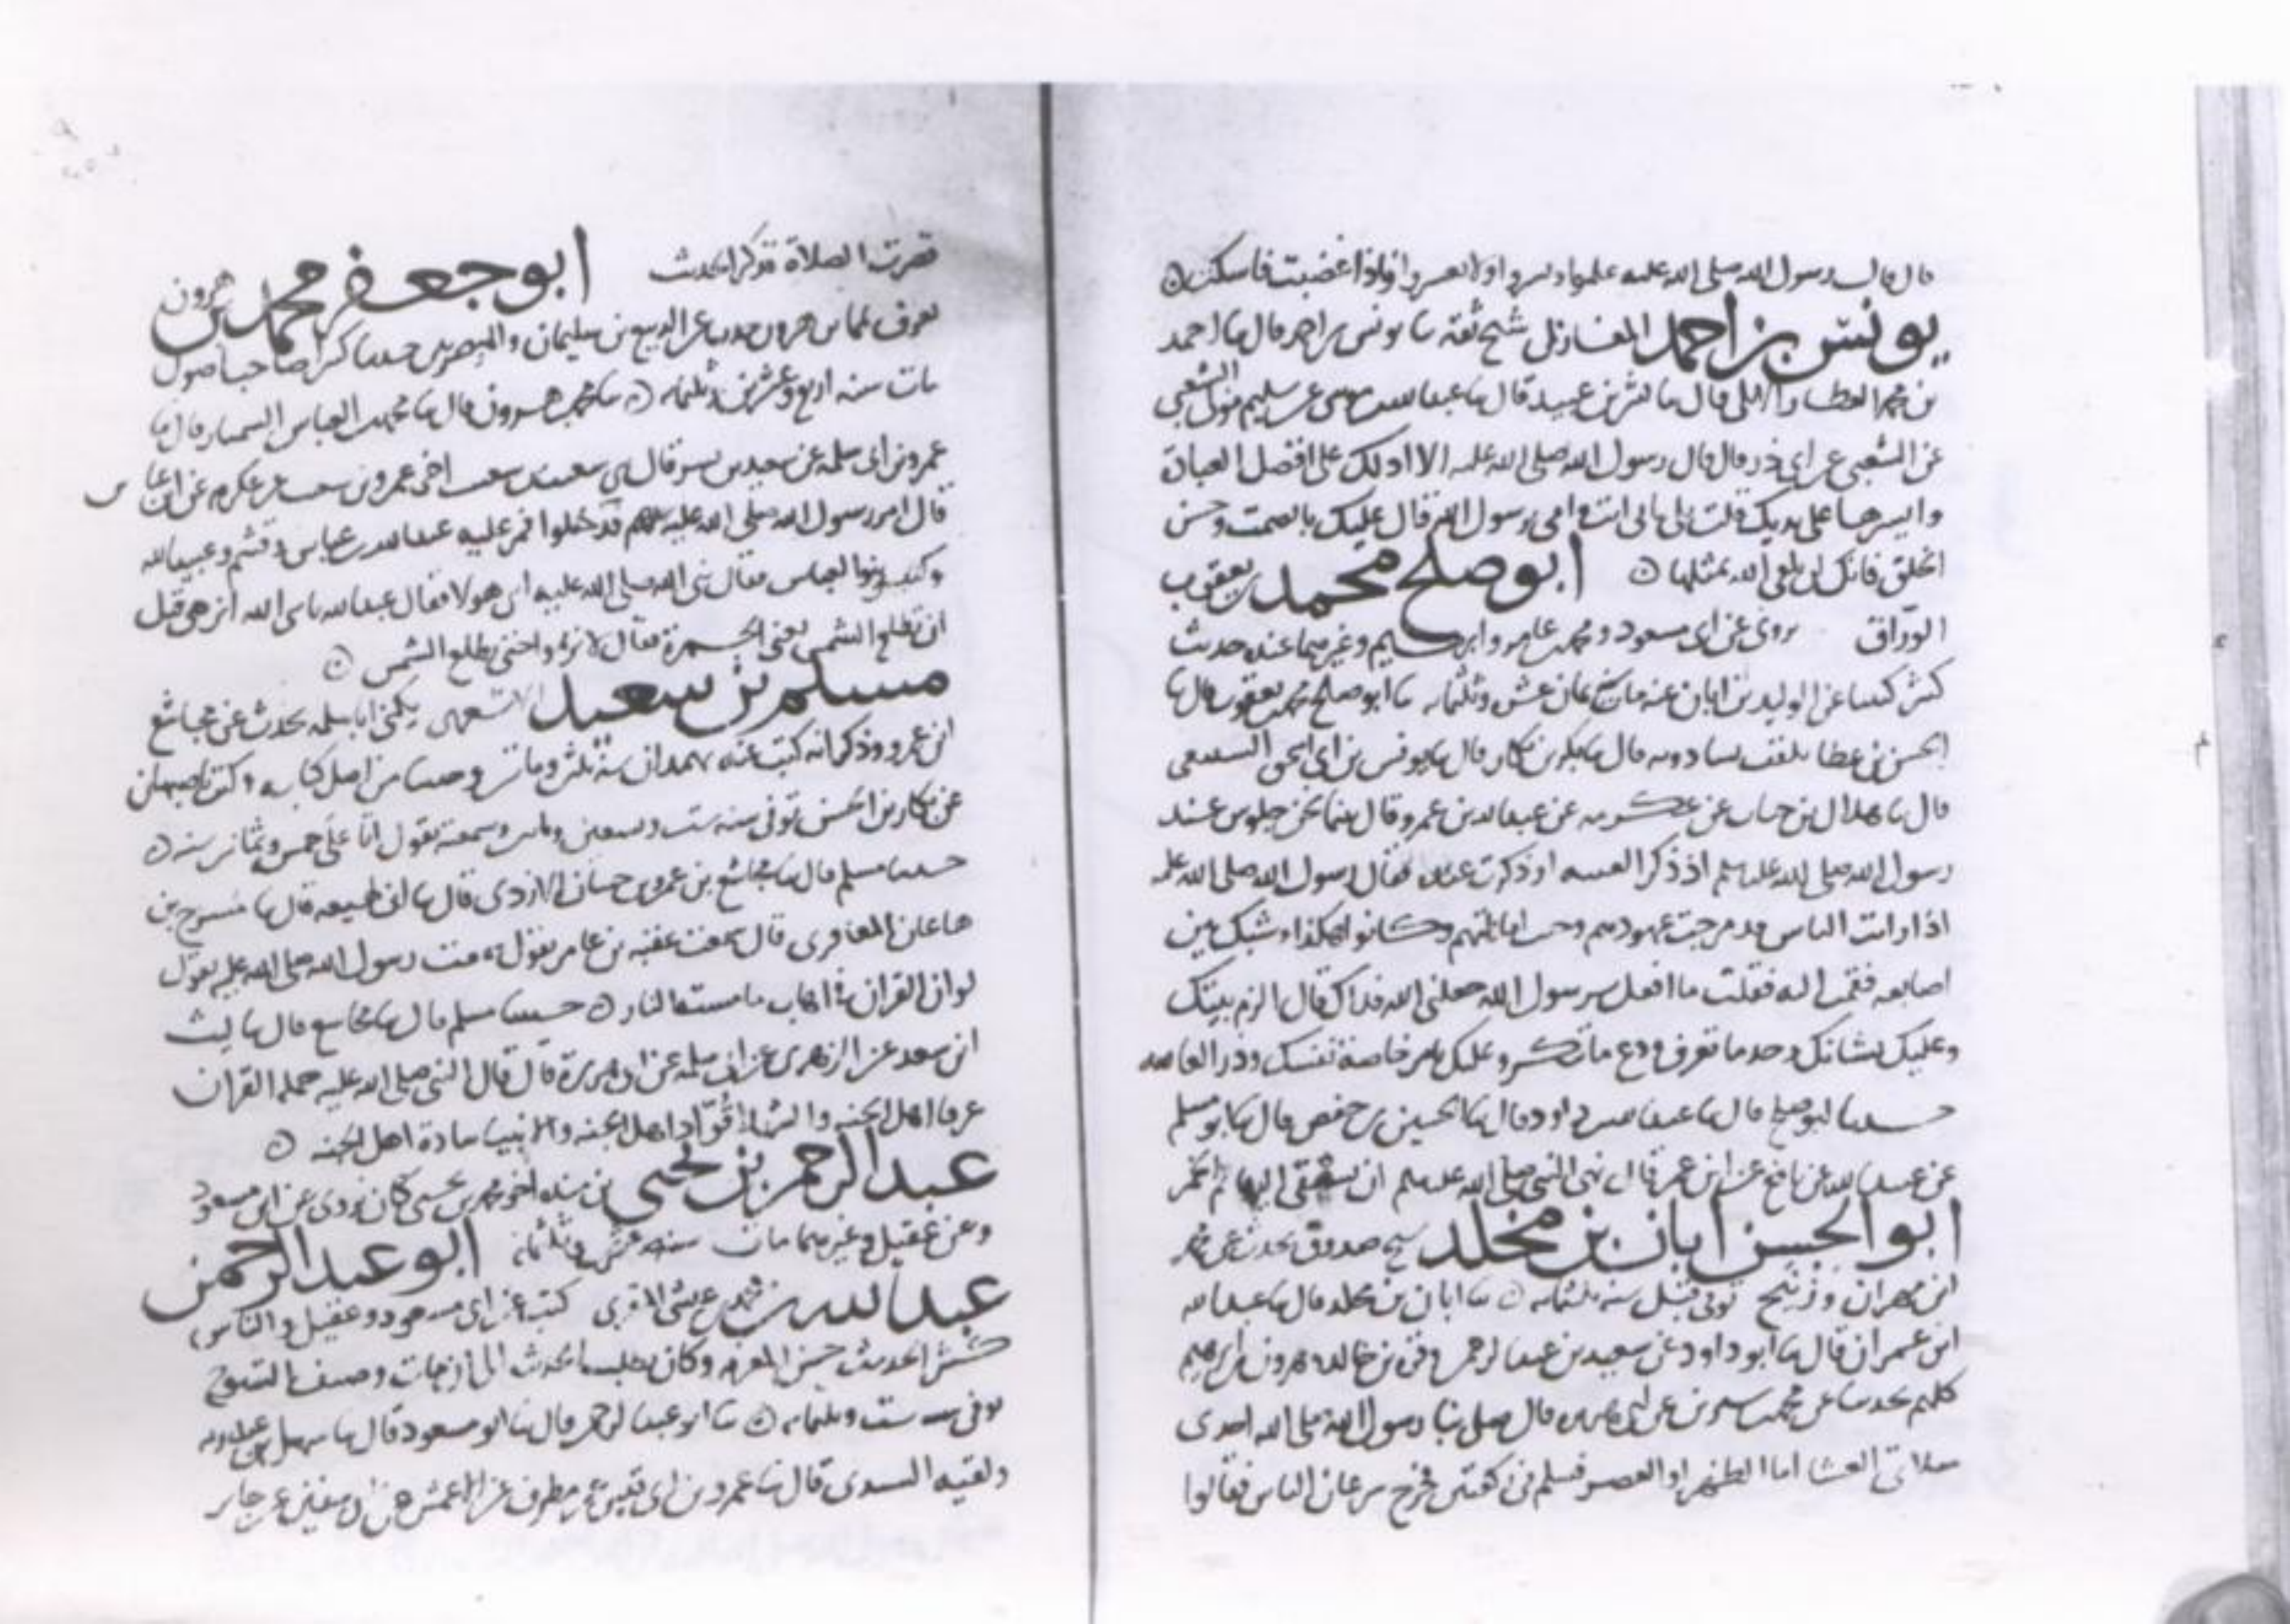 قال قال رسول الله صلى الله عليه علموا ويسروا ولا تعسروا واذا غضبت فاسكت
يونس بن احمد المغازلي شيخ ثقه ثنا يونس بن احمد قال ثنا احمد
بن محمد العطار الابلي قال ثنا بشر بن عبيد قال ثنا عبد الله بن موسى عن سليم مولى الشعبي
عن الشعبي عن ابي ذر قال قال رسول الله صلى الله عليه الا ادلك على افضل العبادة
وايسرها على بدنك قلت بلى بابي انت وامي رسول الله قال عليك بالصمت وحسن
الخلق فانك لن تلقى الله بمثلها ابو صلح محمد بن يعقوب
الوراق يروي عن ابي مسعود ومحمد بن عامر وابرهيم وغيرهما عنده حديث
كثير كتبنا عن الوليد بن ابان عنه مات سنة ثمان عشر وثلثمايه ثنا ابو صلح محمد بن يعقوب قال ثنا
الحسن بن عطا يلقب بساذويه قال ثنا بكر بن بكار قال ثنا يونس بن ابي اسحق السبيعي
قال ثنا هلال بن خباب عن عكرمه عن عبد الله بن عمرو قال بينما نحن جلوس عند
رسول الله صلى الله عليه وسلم اذ ذكر الفتنه او ذكرت عنده فقال رسول الله صلى الله عليه
اذا رايت الناس قد مرجت عهودهم وخفت اماناتهم وكانوا هكذا وشبك بين
اصابعه فقمت اليه فقلت ما افعل يرسول الله جعلني الله فداك قال الزم بيتك
وعليك لسانك وخذ ما تعرف ودع ما تنكر وعليك بامر خاصة نفسك وذر العامه
حدثنا ابو صلح قال ثنا عبد الله بن داود قال ثنا الحسين بن حفص قال ثنا ابو مسلم
عن عبيد الله عن نافع عن ابن عمر قال نهى النبي صلى الله عليه وسلم ان تسقى البهائم الخمر
ابو الحسن ابان بن مخلد شيخ صدوق يحدث عن محمد
ابن مهران وزنيج توفي قبل سنه ثلثمايه ثنا ابان بن مخلد قال ثنا عبد الله
ابن عمران قال ثنا ابو داود عن سعيد بن عبد الرحمن وقره بن خالد وهرون بن ابرهيم
كلهم يحدثنا عن محمد بن سيرين عن ابي هريره قال صلى بنا رسول الله صلى الله احدى
صلاتي العشا اما الظهر او العصر فسلم في ركعتين فخرج سرعان الناس فقالوا
قصرت الصلاة فذكر الحديث ابو جعفر محمد بن هرون
يعرف بماس هرون حدث عن الربيع بن سليمان والمصريين حدثنا كبر اصاحب اصول
مات سنه اربع وعشرين وثلثمايه ثنا محمد بن هرون قال ثنا محمد بن العباس السمسار قال ثنا
عمرو بن ابي سلمه عن سعيد بن بشير قال ثني سعيد بن سعيد اخي عمرو بن سعيد عن عكرمه عن ابن عباس
قال امر رسول الله صلى الله عليه بهم فدخلوا فمر عليه عبد الله بن عباس وقثم وعبيد الله
وكثير بنوا العباس فقال نبي الله صلى الله عليه اين هولا فقال عبد الله يا نبي الله انرمي قبل
ان تطلع الشمس يعني الجمرة فقال لا ترموا حتى تطلع الشمس
مسلم بن سعيد الاشعري يكنى ابا سلمه يحدث عن مجاشع
ابن عمرو وذكر انه كتب عنه بهمدان سنة ثلث وماتين وحدثنا من اصل كتابه وكتب باصبهان
عن بكار بن الحسن توفي سنه ست وتسعين وماتين وسمعته يقول اتا علي خمس وثمانين سنه
حدثنا مسلم قال ثنا مجاشع بن عمرو بن حسان الازدي قال ثنا ابن لهيعه قال ثنا مشرح بن
هاعان المعافري قال سمعت عقبه بن عامر يقول سمعت رسول الله صلى الله عليه يقول
لو ان القران في اهاب ما مسته النار حدثنا مسلم قال ثنا مجاشع قال ثنا ليث
ابن سعد عن الزهري عن ابي سلمه عن ابي هريرة قال قال النبي صلى الله عليه حملة القران
عرفا اهل الجنه والشهدا قواد اهل الجنه والانبيا سادة اهل الجنه
عبد الرحمن بن يحيى بن منده اخو محمد بن يحيى كان يروي عن ابي مسعود
وعن عقيل وغيرهما مات سنه عشرين وثلثمايه ابو عبد الرحمن
عبد الله بن محمد بن عيسى المقري كتب عن ابي مسعود وعقيل والناس
كثير الحديث حسن المعرفه وكان يطلب الحديث الى ان مات وصنف الشيوخ
توفي سنه ست وثلثمايه ثنا ابو عبد الرحمن قال ثنا ابو مسعود قال ثنا سهل بن عبدويه
ولقبه السندي قال ثنا عمرو بن ابي قيس عن مطرف عن الاعمش عن ابي سفين عن جابر